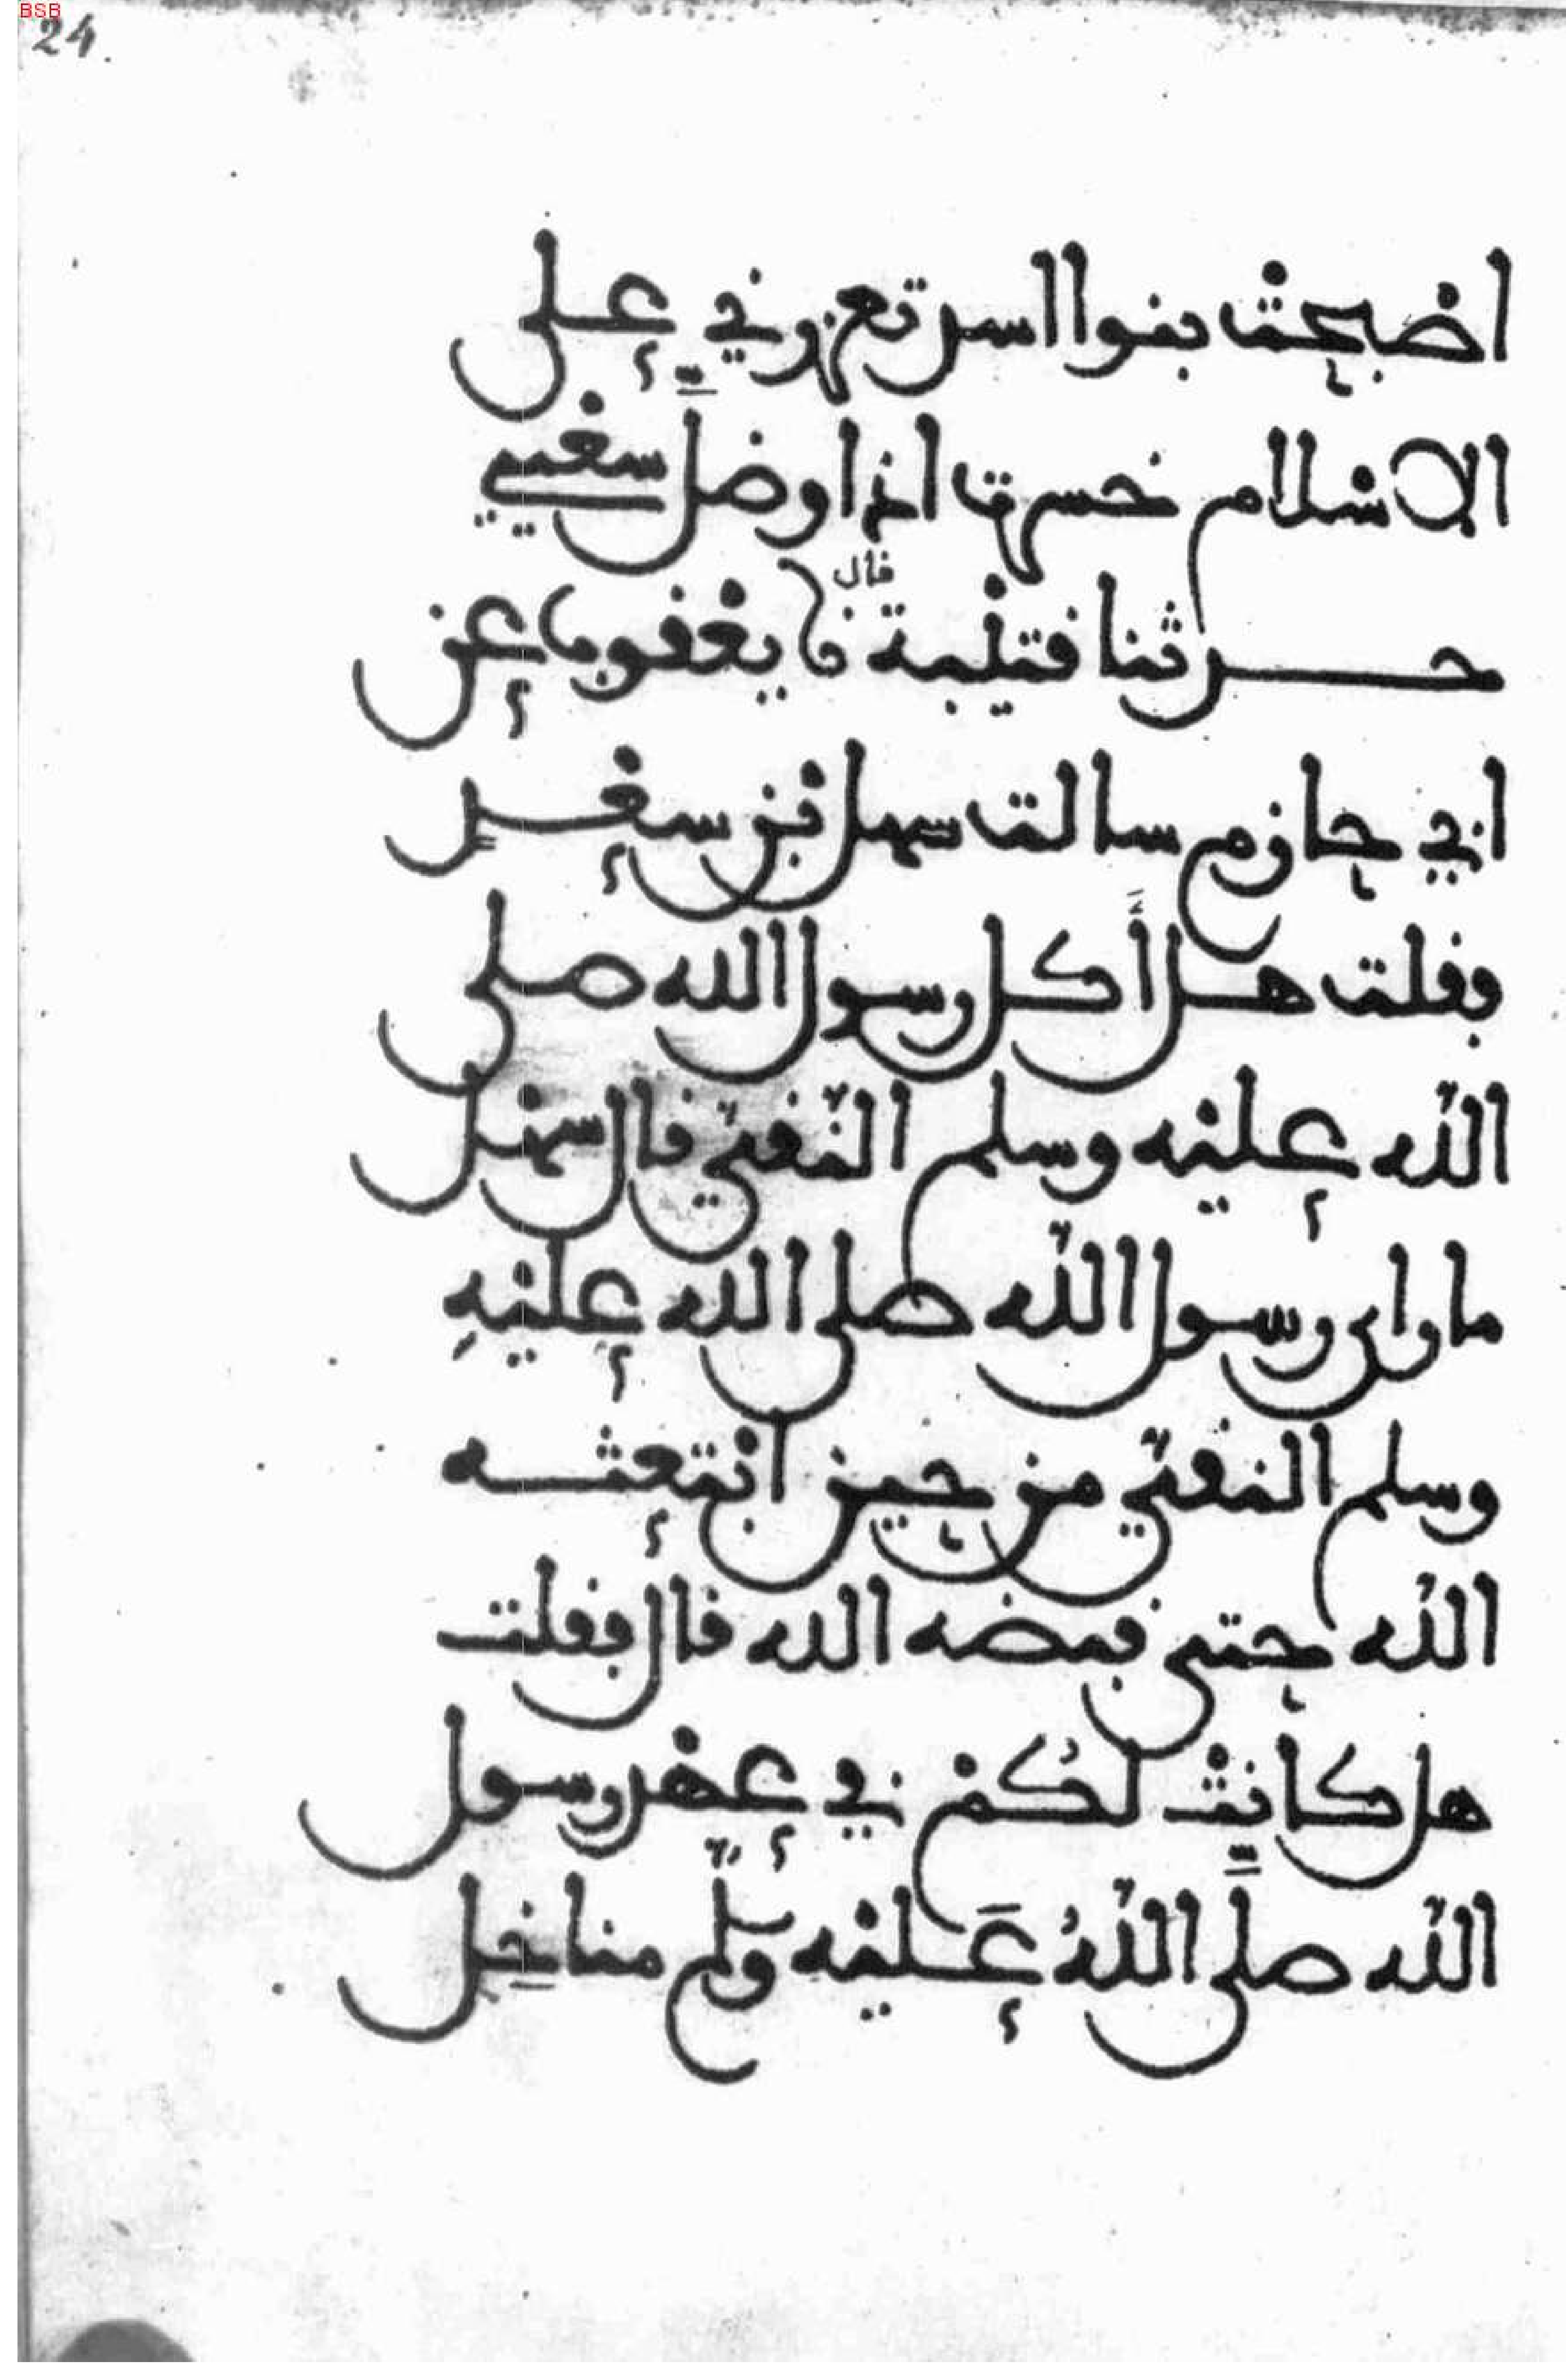 BSB
24.
اصبحت بنوا اسد تعزرني على
الاسلام خسرت اذا وضل سعيي
حدثنا قتيبة قال نا يعقوب عن
ابي حازم سالت سهل بن سعد
فقلت هل أكل رسول الله صلى
الله عليه وسلم النقي قال سهل
ما راى رسول الله صلى الله عليه
وسلم النقي من حين ابتعثه
الله حتى قبضه الله قال فقلت
هل كانت لكم في عهد رسول
الله صلى الله عليه وسلم مناخل